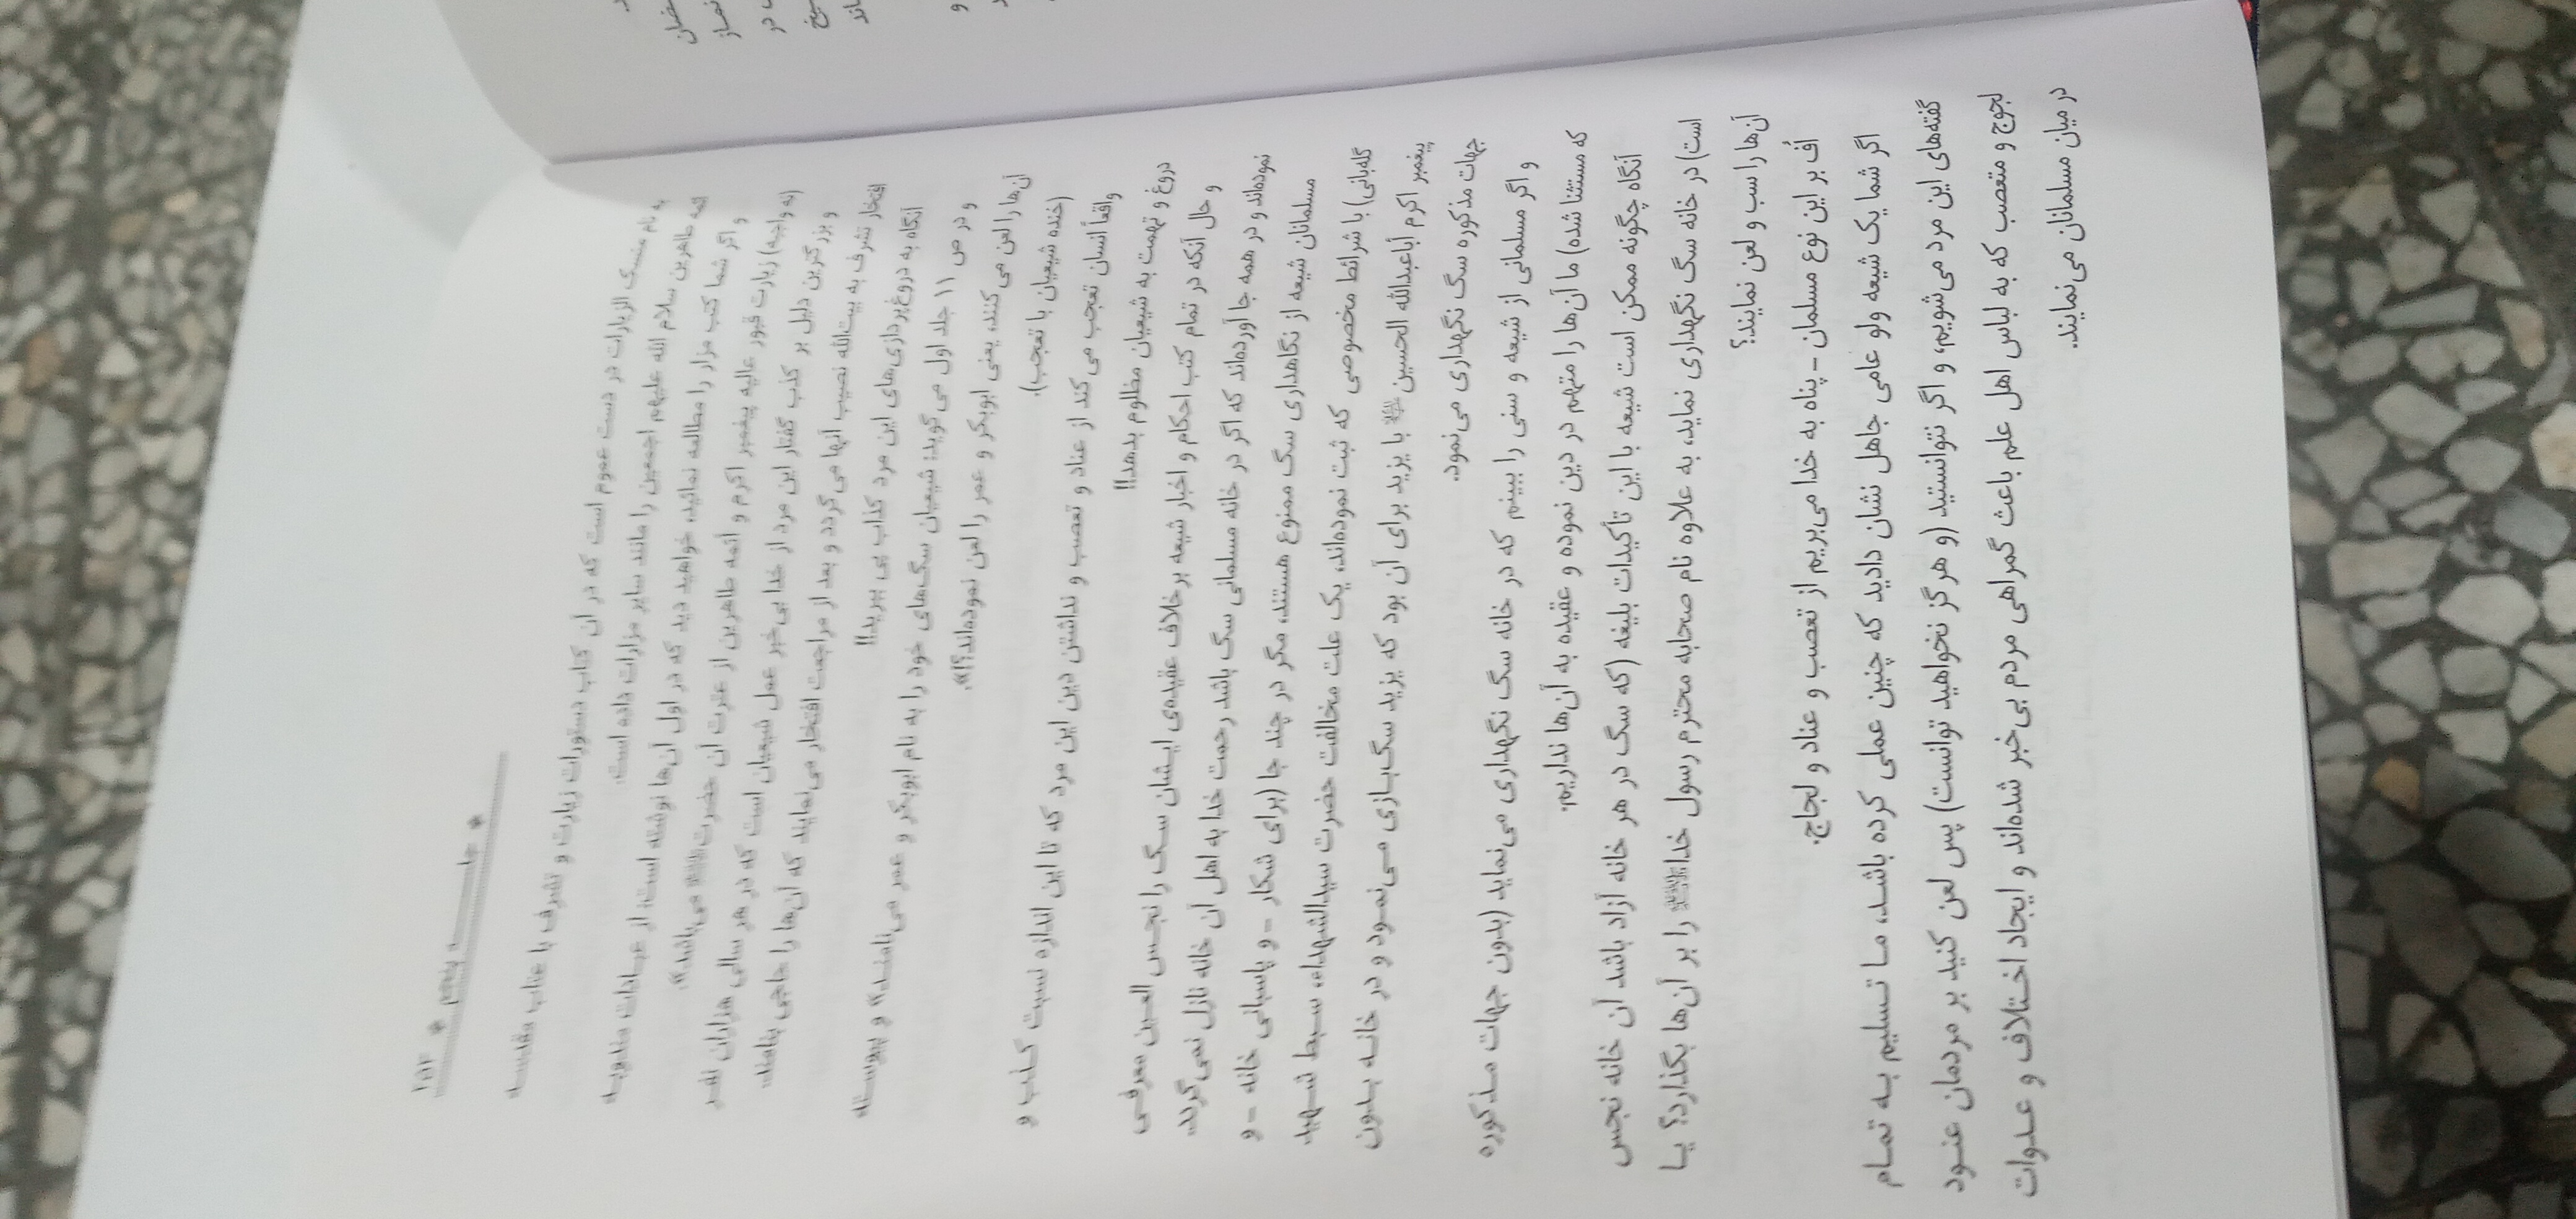 * جلسه پنجم * ۱۵۳
به نام منسک الزیارات در دست عموم است که در آن کتاب دستورات زیارت و تشرف با عتاب مقدسه
ائمه طاهرین سلام الله علیهم اجمعین را مانند سایر مزارات داده است.
و اگر شما کتب مزار را مطالعه نمائید، خواهید دید که در اول آن‌ها نوشته است: از عبادات مندوبه
(نه واجبه) زیارت قبور عالیه پیغمبر اکرم و ائمه طاهرین از عترت آن حضرت ﷺ می‌باشد».
و بزرگترین دلیل بر کذب گفتار این مرد از خدا بی‌خبر عمل شیعیان است که در هر سالی هزاران نفر
افتخار تشرف به بیت‌الله نصیب آنها می‌گردد و بعد از مراجعت افتخار می‌نمایند که آن‌ها را حاجی بنامند.
آنگاه به دروغ‌پردازی‌های این مرد کذاب پی ببرید!!
و در ص ۱۱ جلد اول می‌گوید: شیعیان سگ‌های خود را به نام ابوبکر و عمر می‌نامند» و پیوسته
آن‌ها را لعن می‌کنند، یعنی ابوبکر و عمر را لعن نموده‌اند؟!».
(خنده شیعیان با تعجب).
واقعاً انسان تعجب می کند از عناد و تعصب و نداشتن دین این مرد که تا این اندازه نسبت کذب و
دروغ و تهمت به شیعیان مظلوم بدهد!!
و حال آنکه در تمام کتب احکام و اخبار شیعه برخلاف عقیده‌ی ایشان سگ را نجس العین معرفی
نموده‌اند و در همه جا آورده‌اند که اگر در خانه مسلمانی سگ باشد رحمت خدا به اهل آن خانه نازل نمی‌گردد.
مسلمانان شیعه از نگاهداری سگ ممنوع هستند، مگر در چند جا (برای شکار - و پاسبانی خانه - و
گله‌بانی) با شرائط مخصوصی که ثبت نموده‌اند، یک علت مخالفت حضرت سیدالشهداء، سبط شهید
پیغمبر اکرم أباعبدالله الحسین با یزید برای آن بود که یزید سگ‌بازی می‌نمود و در خانه بدون
جهات مذکوره سگ نگهداری می‌نمود.
و اگر مسلمانی از شیعه و سنی را ببینم که در خانه سگ نگهداری می‌نماید (بدون جهات مذکوره
که مستثنا شده) ما آن‌ها را متهم در دین نموده و عقیده به آن‌ها نداریم.
آنگاه چگونه ممکن است شیعه با این تأکیدات بلیغه (که سگ در هر خانه آزاد باشد آن خانه نجس
است) در خانه سگ نگهداری نماید، به علاوه نام صحابه محترم رسول خدا ﷺ را بر آن‌ها بگذارد؟ یا
آن‌ها را سب و لعن نمایند؟
اُف بر این نوع مسلمان - پناه به خدا می‌بریم از تعصب و عناد و لجاج.
اگر شما یک شیعه ولو عامی جاهل نشان دادید که چنین عملی کرده باشد، ما تسلیم به تمام
گفته‌های این مرد می‌شویم، و اگر نتوانستید (و هرگز نخواهید توانست) پس لعن کنید بر مردمان عنود
لجوج و متعصب که به لباس اهل علم باعث گمراهی مردم بی‌خبر شده‌اند و ایجاد اختلاف و عدوات
در میان مسلمانان می‌نمایند.